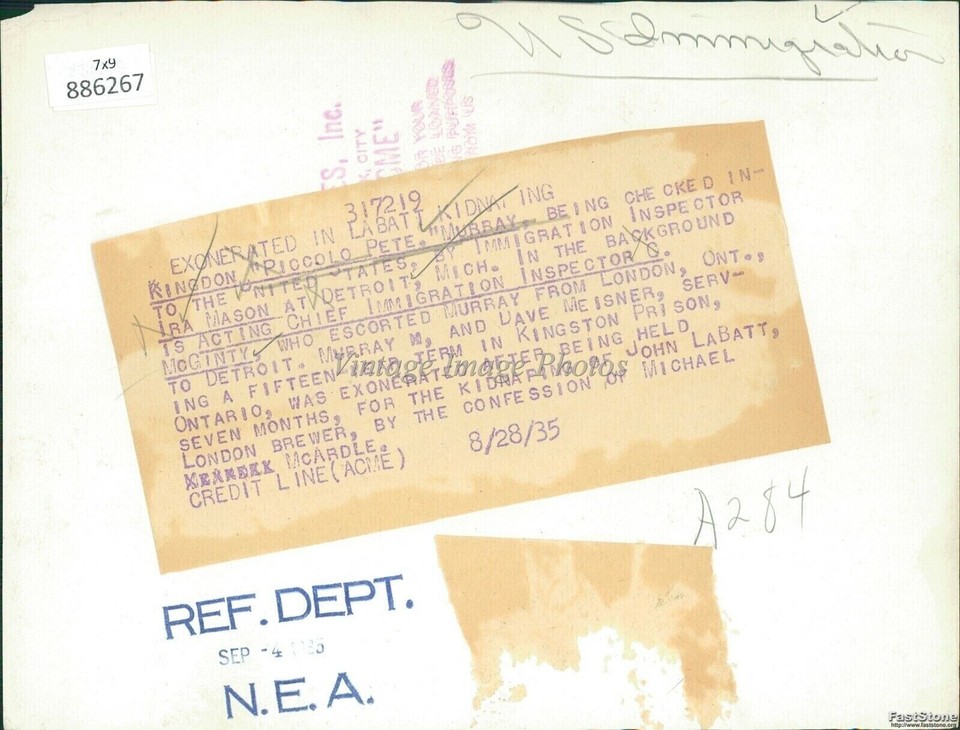 U S Immigration
7x9
886267
ES, Inc.
CITY
OR YOUR
BE LOANED
NG PURPOSES
ROM US
317219
EXONERATED IN LABATT KIDNAPING
KINGDON "RICCOLO PETE, "MURRAY, BEING CHECKED IN-
TO THE UNITED STATES, BY IMMIGRATION INSPECTOR
IRA MASON AT DETROIT, MICH. IN THE BACKGROUND
IS ACTING CHIEF IMMIGRATION INSPECTOR G.
MCGINTY, WHO ESCORTED MURRAY FROM LONDON, ONT.,
TO DETROIT. MURRAY, AND DAVE MEISNER, SERV-
ING A FIFTEEN TERM IN KINGSTON PRISON,
ONTARIO, WAS EXONERATED, AFTER BEING HELD
SEVEN MONTHS, FOR THE KIDNAPING JOHN LABATT,
LONDON BREWER, BY THE CONFESSION OF MICHAEL
MCARDLE.
CREDIT LINE (ACME) 8/28/35
Vintage Image Photos
A284
REF. DEPT.
SEP -4
N.E.A.
FastStone
http://www.faststone.org